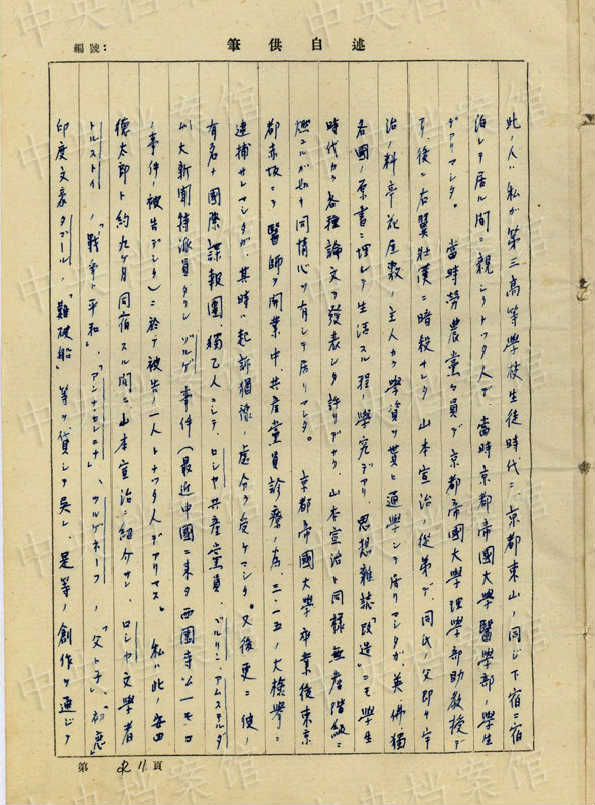 自述供筆
編號:
此ノ人ハ私ガ第三高等學校生徒時代ニ、京都東山ノ同ジ下宿ニ宿
泊シテ居ル間ニ親シクナツタ人デ、當時京都帝國大學醫學部ノ學生
デアリマシタ。當時勞農黨々員デ京都帝國大學理學部助教授デ
後ニ右翼壯漢ニ暗殺サレタ山本宣治ノ從弟デ、同氏ノ父即チ宇
治ノ料亭花屋敷ノ主人カラ學資ヲ貰ヒ通學シテ居リマシタガ英佛獨
各國ノ原書ニ埋レテ生活スル程ノ學究デアリ、思想雜誌「改造」ニモ學生
時代カラ各種論文ヲ發表シタ許リデナク、山本宣治ト同樣無產階級ニ
燃ユルガ如キ同情心ヲ有シテ居リマシタ。京都帝國大學卒業後東京
都赤坂ニテ醫師ヲ開業中、共產黨員診療ノ為、三・一五ノ大檢擧ニ
逮捕サレマシタガ、其時ハ起訴猶豫處分ヲ受ケマシタ。又後更ニ彼ノ
有名ナ國際諜報團、獨乙人ニシテ、ロシヤ共產黨員、ベルリン、アムステルダ
ム大新聞特派員タルゾルゲ事件(最近中國ニ來タ西園寺公一モコ
ノ事件ノ被告デシタ)ニ於テ被告ノ一人トナツタ人デアリマス。私ハ此ノ安田
德太郎ト約九ケ月同宿スル間ニ山本宣治ニ紹介サレ、ロシヤ文學者
トルストイノ「戰爭ト平和」、「アンナ・カレニナ」、ツルゲネーフノ「父ト子」、「初恋」
印度文豪タゴールノ「難破船」等ヲ貸シテ吳レ、是等ノ創作ヲ通ジテ
第 11 頁
中央档案馆